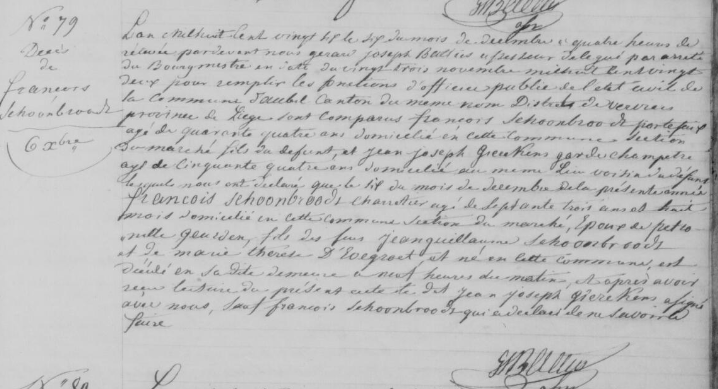 No. 79
Decé
de
francois
Schoonbroodt
6 xbre
L'an Milhuit Cent vingt six le six du mois de decembre a quatre heures de
relevée pardevant nous gerard joseph assesseur delegué par arreté
du Bourgmestre en date du vingt trois novembre milhuit Cent vingt
deux pour remplir les fonctions d'officier publique de l'etat civile de
la Commune d'aubel Canton du meme nom District de verviers
province de Liege sont Comparus francois Schoonbroodt portefaix
agé de quarante quatre ans domicilié en cette Commune Section
du marché fils du defunt, et jean joseph Gierkens garde Champetre
agé de Cinquante quatre ans domicilié au meme Lieu voisin du defunt
lesquels nous ont declaré que le six du mois de decembre de la presente année
francois Schoonbroodt Charretier agé de septante trois ans et huit
mois domicilié en cette Commune section du marché, Epoux de petro-
nille Geurden, fils des feus jean guillaume Schoonbroodt
et de marie therese et né en cette Commune, est
décédé en sa dite demeure a neuf heures du matin, et après avoir
reçu lecture du présent acte le dit jean joseph Gierkens a signé
avec nous, sauf francois Schoonbroodt qui a declaré de ne savoir le
faire
No. 80